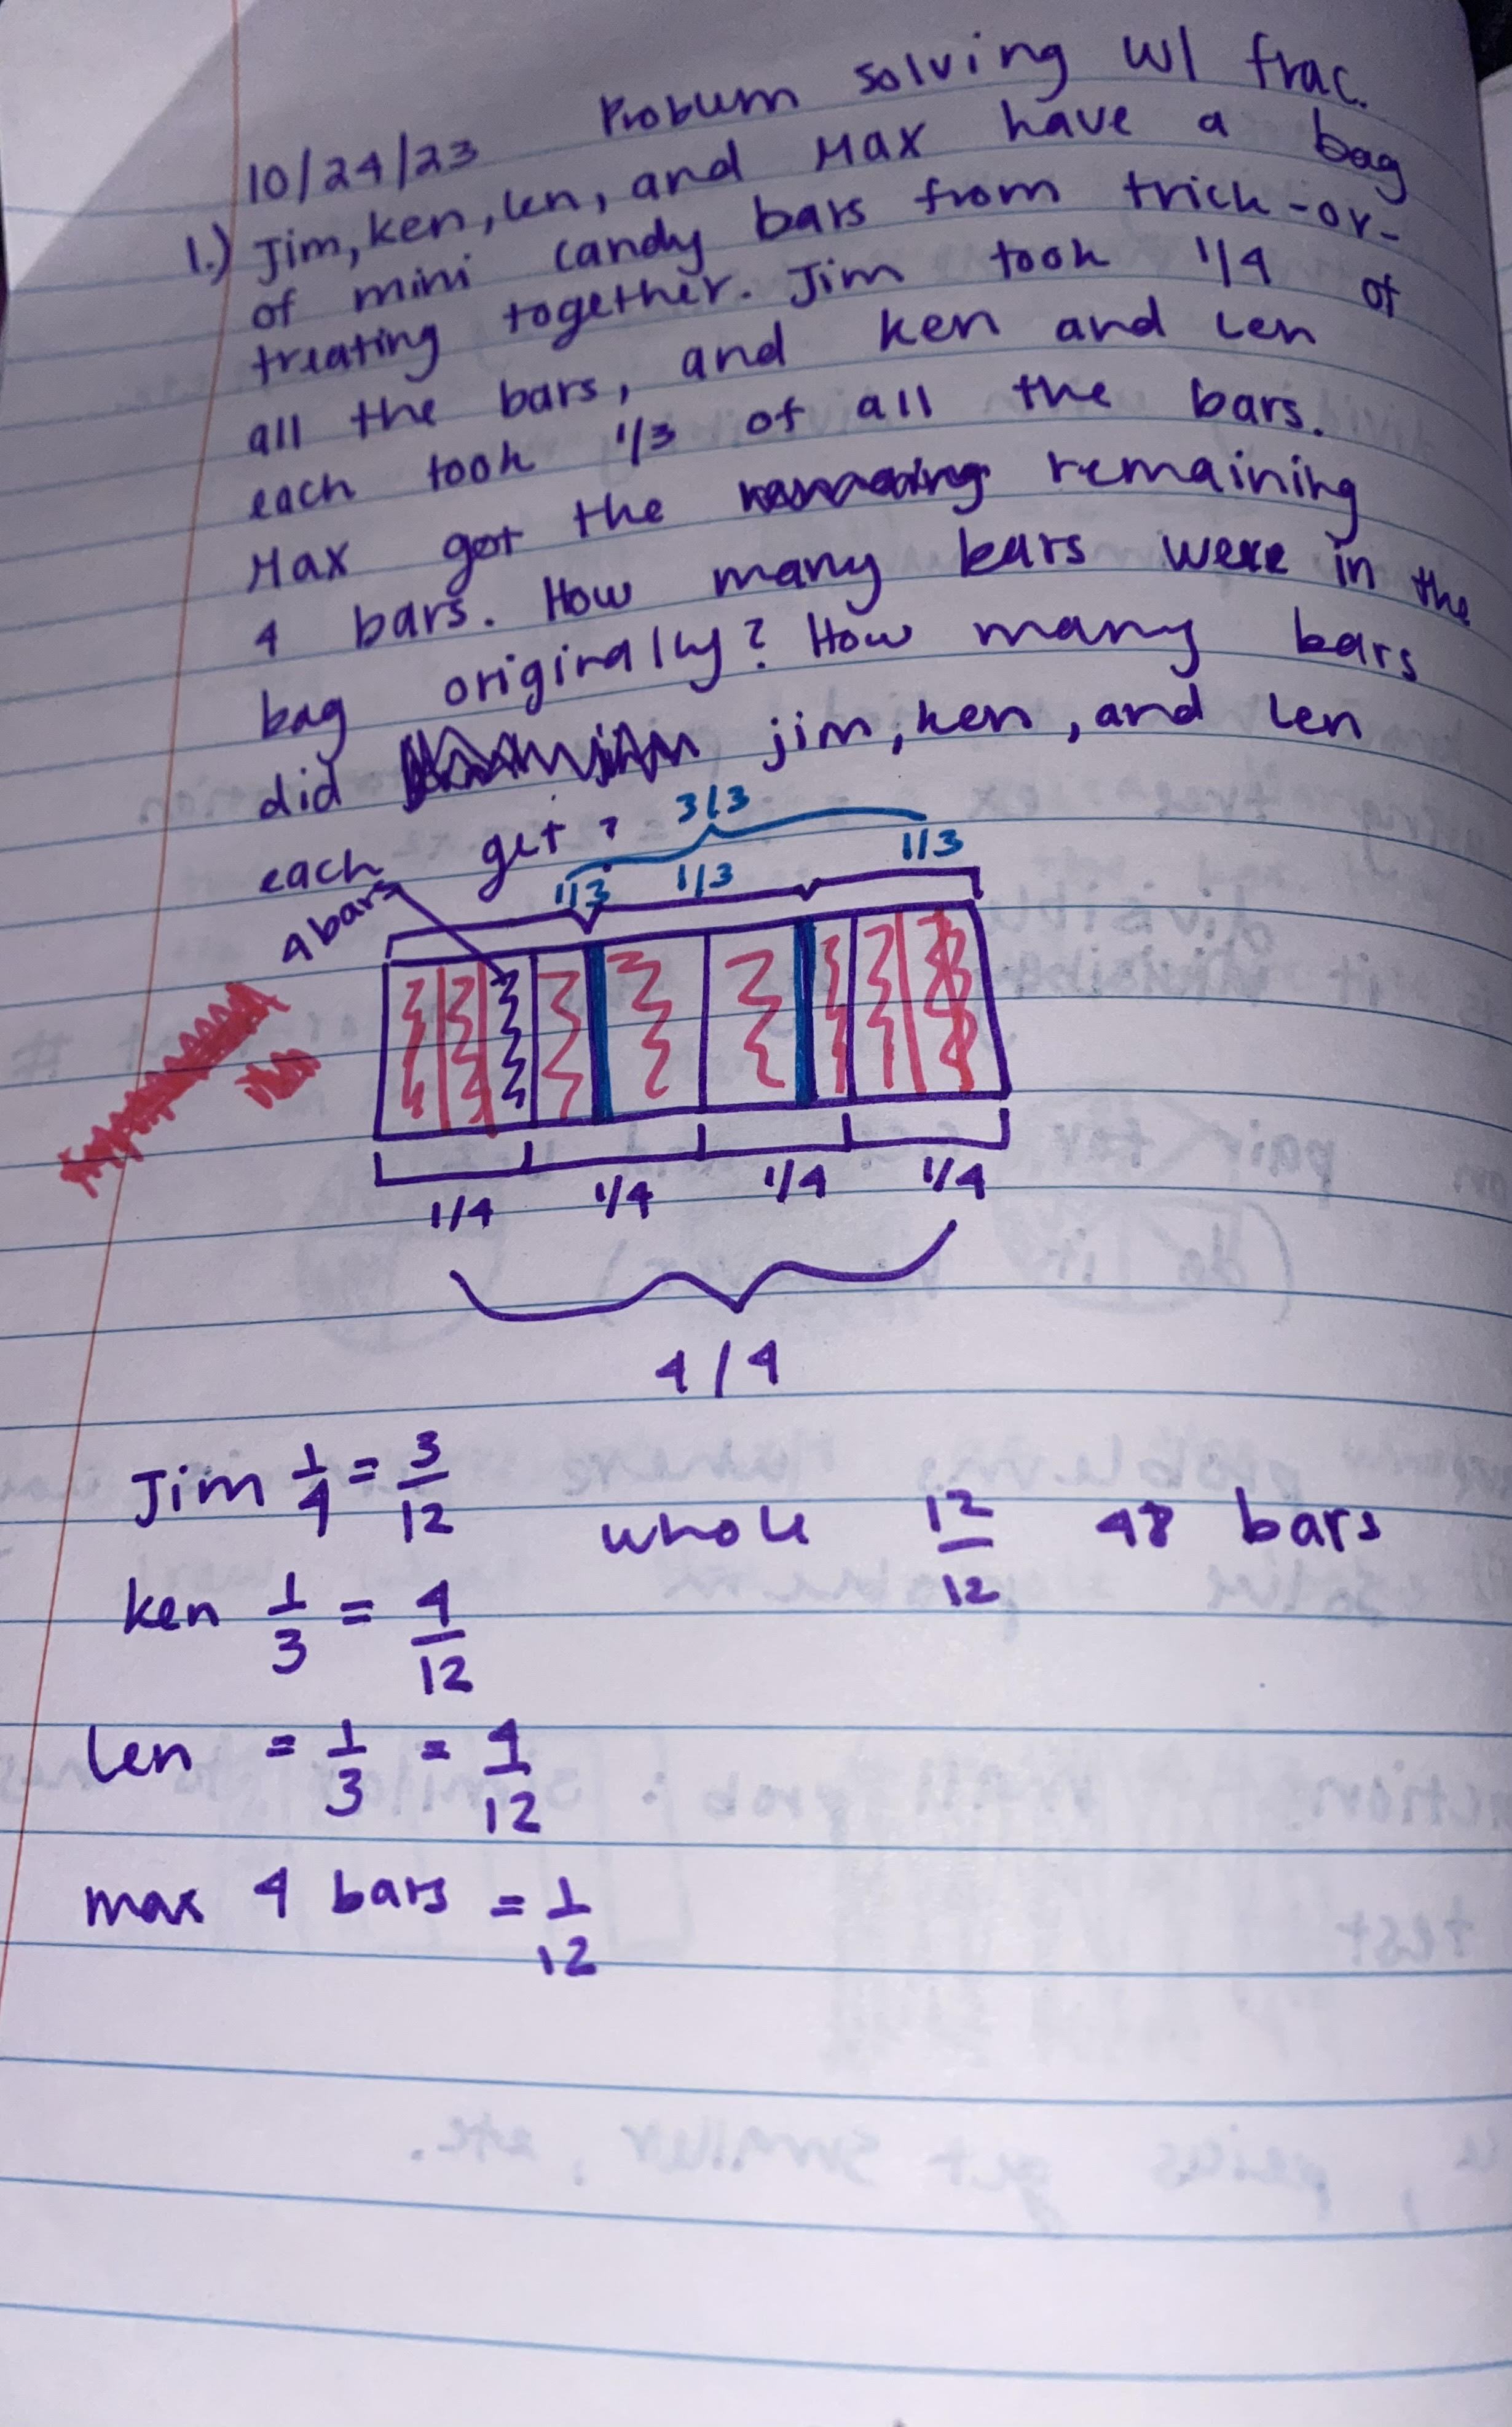 10/24/23 Problem solving w/ frac.
1.) Jim, ken, len, and Max have a bag
of mini candy bars from trick-or-
treating together. Jim took 1/4 of
all the bars, and ken and len
each took 1/3 of all the bars.
Max got the remaining
4 bars. How many bars were in the
bag originally? How many bars
did jim, ken, and len
each get?
3/3
1/3 1/3 1/3
4 bars
1/4 1/4 1/4 1/4
4/4
Jim 1/4 = 3/12
whole 12/12 48 bars
ken 1/3 = 4/12
len = 1/3 = 4/12
max 4 bars = 1/12